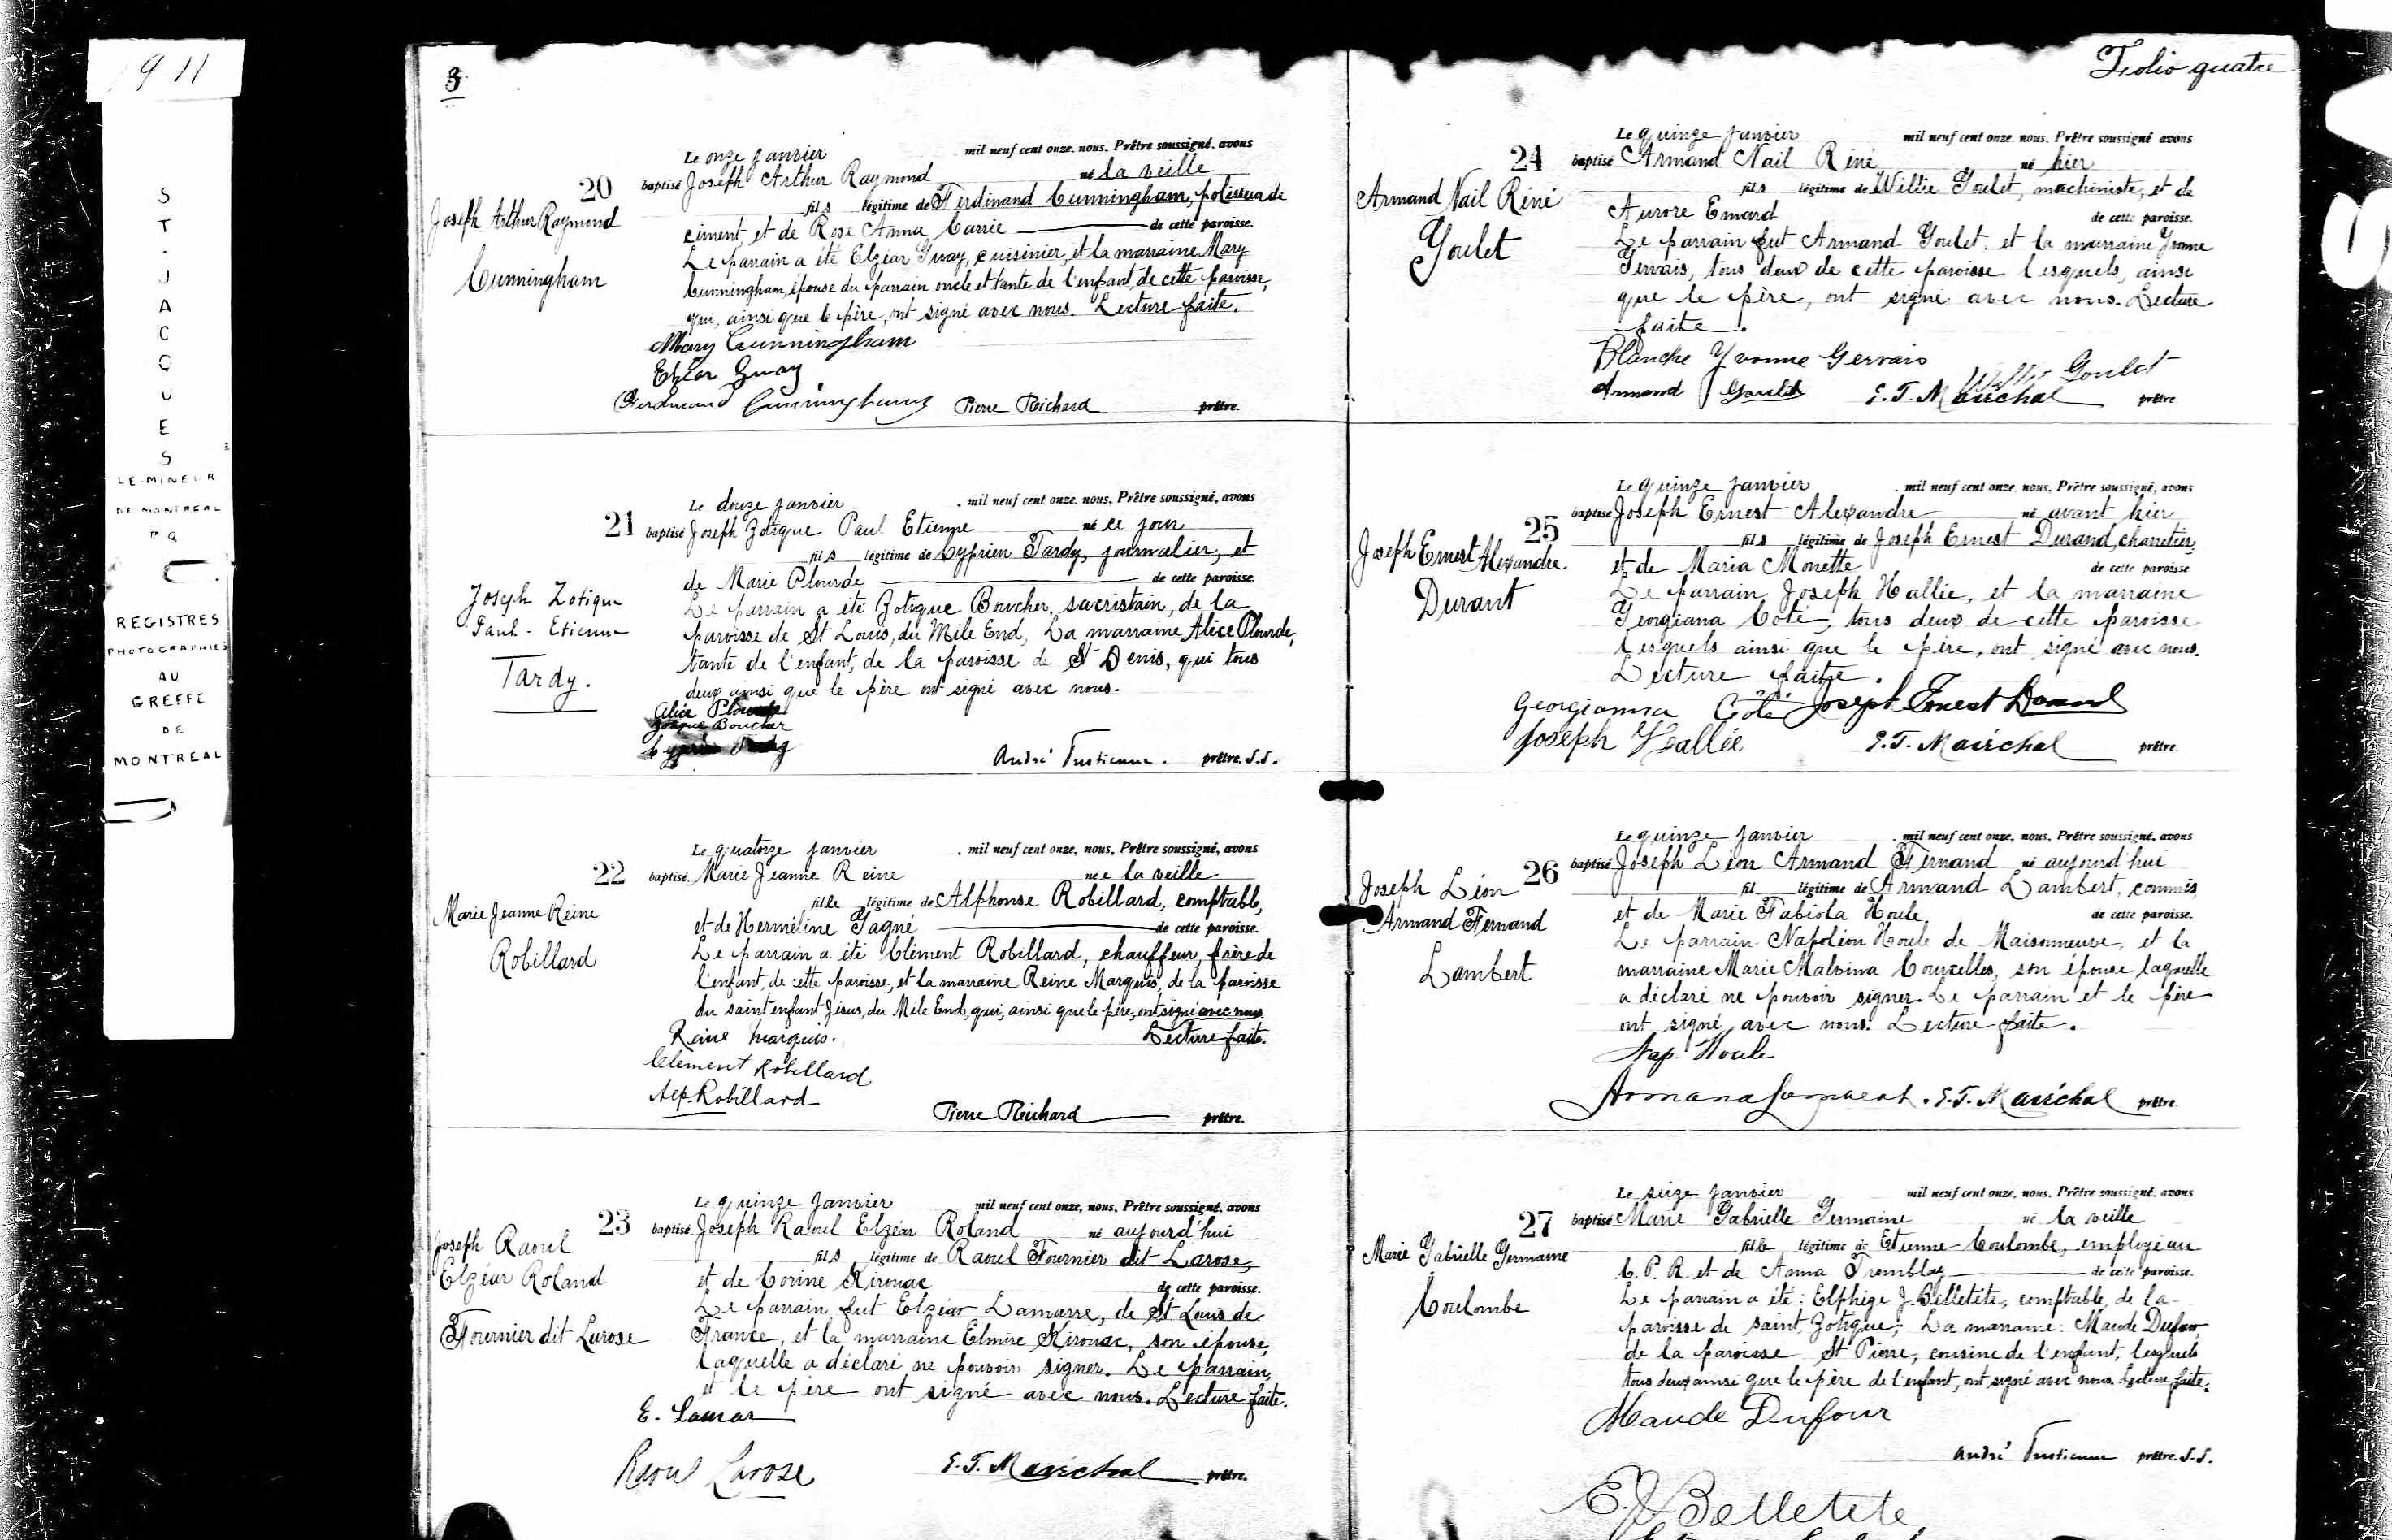 1911
ST-JACQUES
LE-MINEUR
DE MONTREAL
P Q
REGISTRES
PHOTOGRAPHIES
AU
GREFFE
DE
MONTREAL
3
20
Joseph Arthur Raymond
Cunningham
Le onze janvier mil neuf cent onze, nous, Prêtre soussigné, avons
baptisé Joseph Arthur Raymond né la veille
fils légitime de Ferdinand Cunningham, polisseur de
ciment, et de Rose Anna Currie de cette paroisse.
Le parrain a été Elzéar Guay, cuisinier, et la marraine Mary
Cunningham, épouse du parrain oncle et tante de l'enfant, de cette paroisse,
qui, ainsi que le père, ont signé avec nous. Lecture faite.
Mary Cunningham
Elzéar Guay
Ferdinand Cunningham Pierre Richard prêtre.
21
Joseph Zotique
Paul-Etienne
Tardy.
Le douze janvier mil neuf cent onze, nous, Prêtre soussigné, avons
baptisé Joseph Zotique Paul Etienne né ce jour
fils légitime de Cyprien Tardy, journalier, et
de Marie Plourde de cette paroisse.
Le parrain a été Zotique Boucher, sacristain, de la
paroisse de St Louis, du Mile End, La marraine Alice Plourde,
tante de l'enfant, de la paroisse de St Denis, qui tous
deux ainsi que le père ont signé avec nous.
Alice Plourde
Zotique Boucher
Cyprien Tardy
André prêtre. S.S.
22
Marie Jeanne Reine
Robillard
Le quatorze janvier mil neuf cent onze, nous, Prêtre soussigné, avons
baptisé Marie Jeanne Reine née la veille
fille légitime de Alphonse Robillard, comptable,
et de Herméline Gagné de cette paroisse.
Le parrain a été Clément Robillard, chauffeur, frère de
l'enfant, de cette paroisse, et la marraine Reine Marquis, de la paroisse
du saint enfant Jésus, du Mile End, qui, ainsi que le père, ont signé avec nous
Lecture faite.
Reine Marquis.
Clement Robillard
Alp. Robillard
Pierre Richard prêtre.
23
Joseph Raoul
Elzéar Roland
Fournier dit Larose
Le quinze Janvier mil neuf cent onze, nous, Prêtre soussigné, avons
baptisé Joseph Raoul Elzéar Roland né aujourd'hui
fils légitime de Raoul Fournier dit Larose,
et de Corine Kirouac de cette paroisse.
Le parrain fut Elzéar Lamarre, de St Louis de
France, et la marraine Elmire Kirouac, son épouse,
laquelle a déclaré ne pouvoir signer. Le parrain,
et le père ont signé avec nous. Lecture faite.
E. Lamar
Raoul Larose E. T. Maréchal prêtre.
Folio quatre
24
Armand Nail Réné
Goulet
Le quinze Janvier mil neuf cent onze, nous, Prêtre soussigné avons
baptisé Armand Nail Réné né hier
fils légitime de Willie Goulet, machiniste, et de
Aurore Emard de cette paroisse.
Le parrain fut Armand Goulet, et la marraine Yvonne
Gervais, tous deux de cette paroisse lesquels, ainsi
que le père, ont signé avec nous. Lecture
faite.
Blanche Yvonne Gervais
Willie Goulet
Armand Goulet E. T. Maréchal prêtre
25
Joseph Ernest Alexandre
Durant
Le quinze Janvier mil neuf cent onze, nous, Prêtre soussigné, avons
baptisé Joseph Ernest Alexandre né avant hier
fils légitime de Joseph Ernest Durand, charretier,
et de Maria Monette de cette paroisse
Le parrain, Joseph Hallée, et la marraine
Georgiana Coté, tous deux de cette paroisse
lesquels ainsi que le père, ont signé avec nous.
Lecture faite.
Georgianna Côté Joseph Ernest Durand
Joseph Hallée E. T. Maréchal prêtre.
26
Joseph Léon
Armand Fernand
Lambert
Le quinze Janvier mil neuf cent onze, nous, Prêtre soussigné, avons
baptisé Joseph Léon Armand Fernand né aujourd'hui
fil légitime de Armand Lambert, commis
et de Marie Fabiola Houle. de cette paroisse.
Le parrain Napoléon Houle de Maisonneuve, et la
marraine Marie Malvina Courcelles, son épouse laquelle
a déclaré ne pouvoir signer. Le parrain et le père
ont signé avec nous. Lecture faite.
Nap. Houle
Armand Lambert. E. T. Maréchal prêtre.
27
Marie Gabrielle Germaine
Coulombe
Le seize Janvier mil neuf cent onze, nous, Prêtre soussigné, avons
baptisé Marie Gabrielle Germaine né la veille
fille légitime de Etienne Coulombe, employé au
C. P. R. et de Anna Tremblay de cette paroisse.
Le parrain a été: Elphège J. Belletête, comptable, de la
paroisse de saint Zotique; La marraine: Maude Dufour,
de la paroisse St Pierre, cousine de l'enfant, lesquels
tous deux ainsi que le père de l'enfant, ont signé avec nous. Lecture faite.
Maude Dufour
André prêtre. S.S.
E. J. Belletete